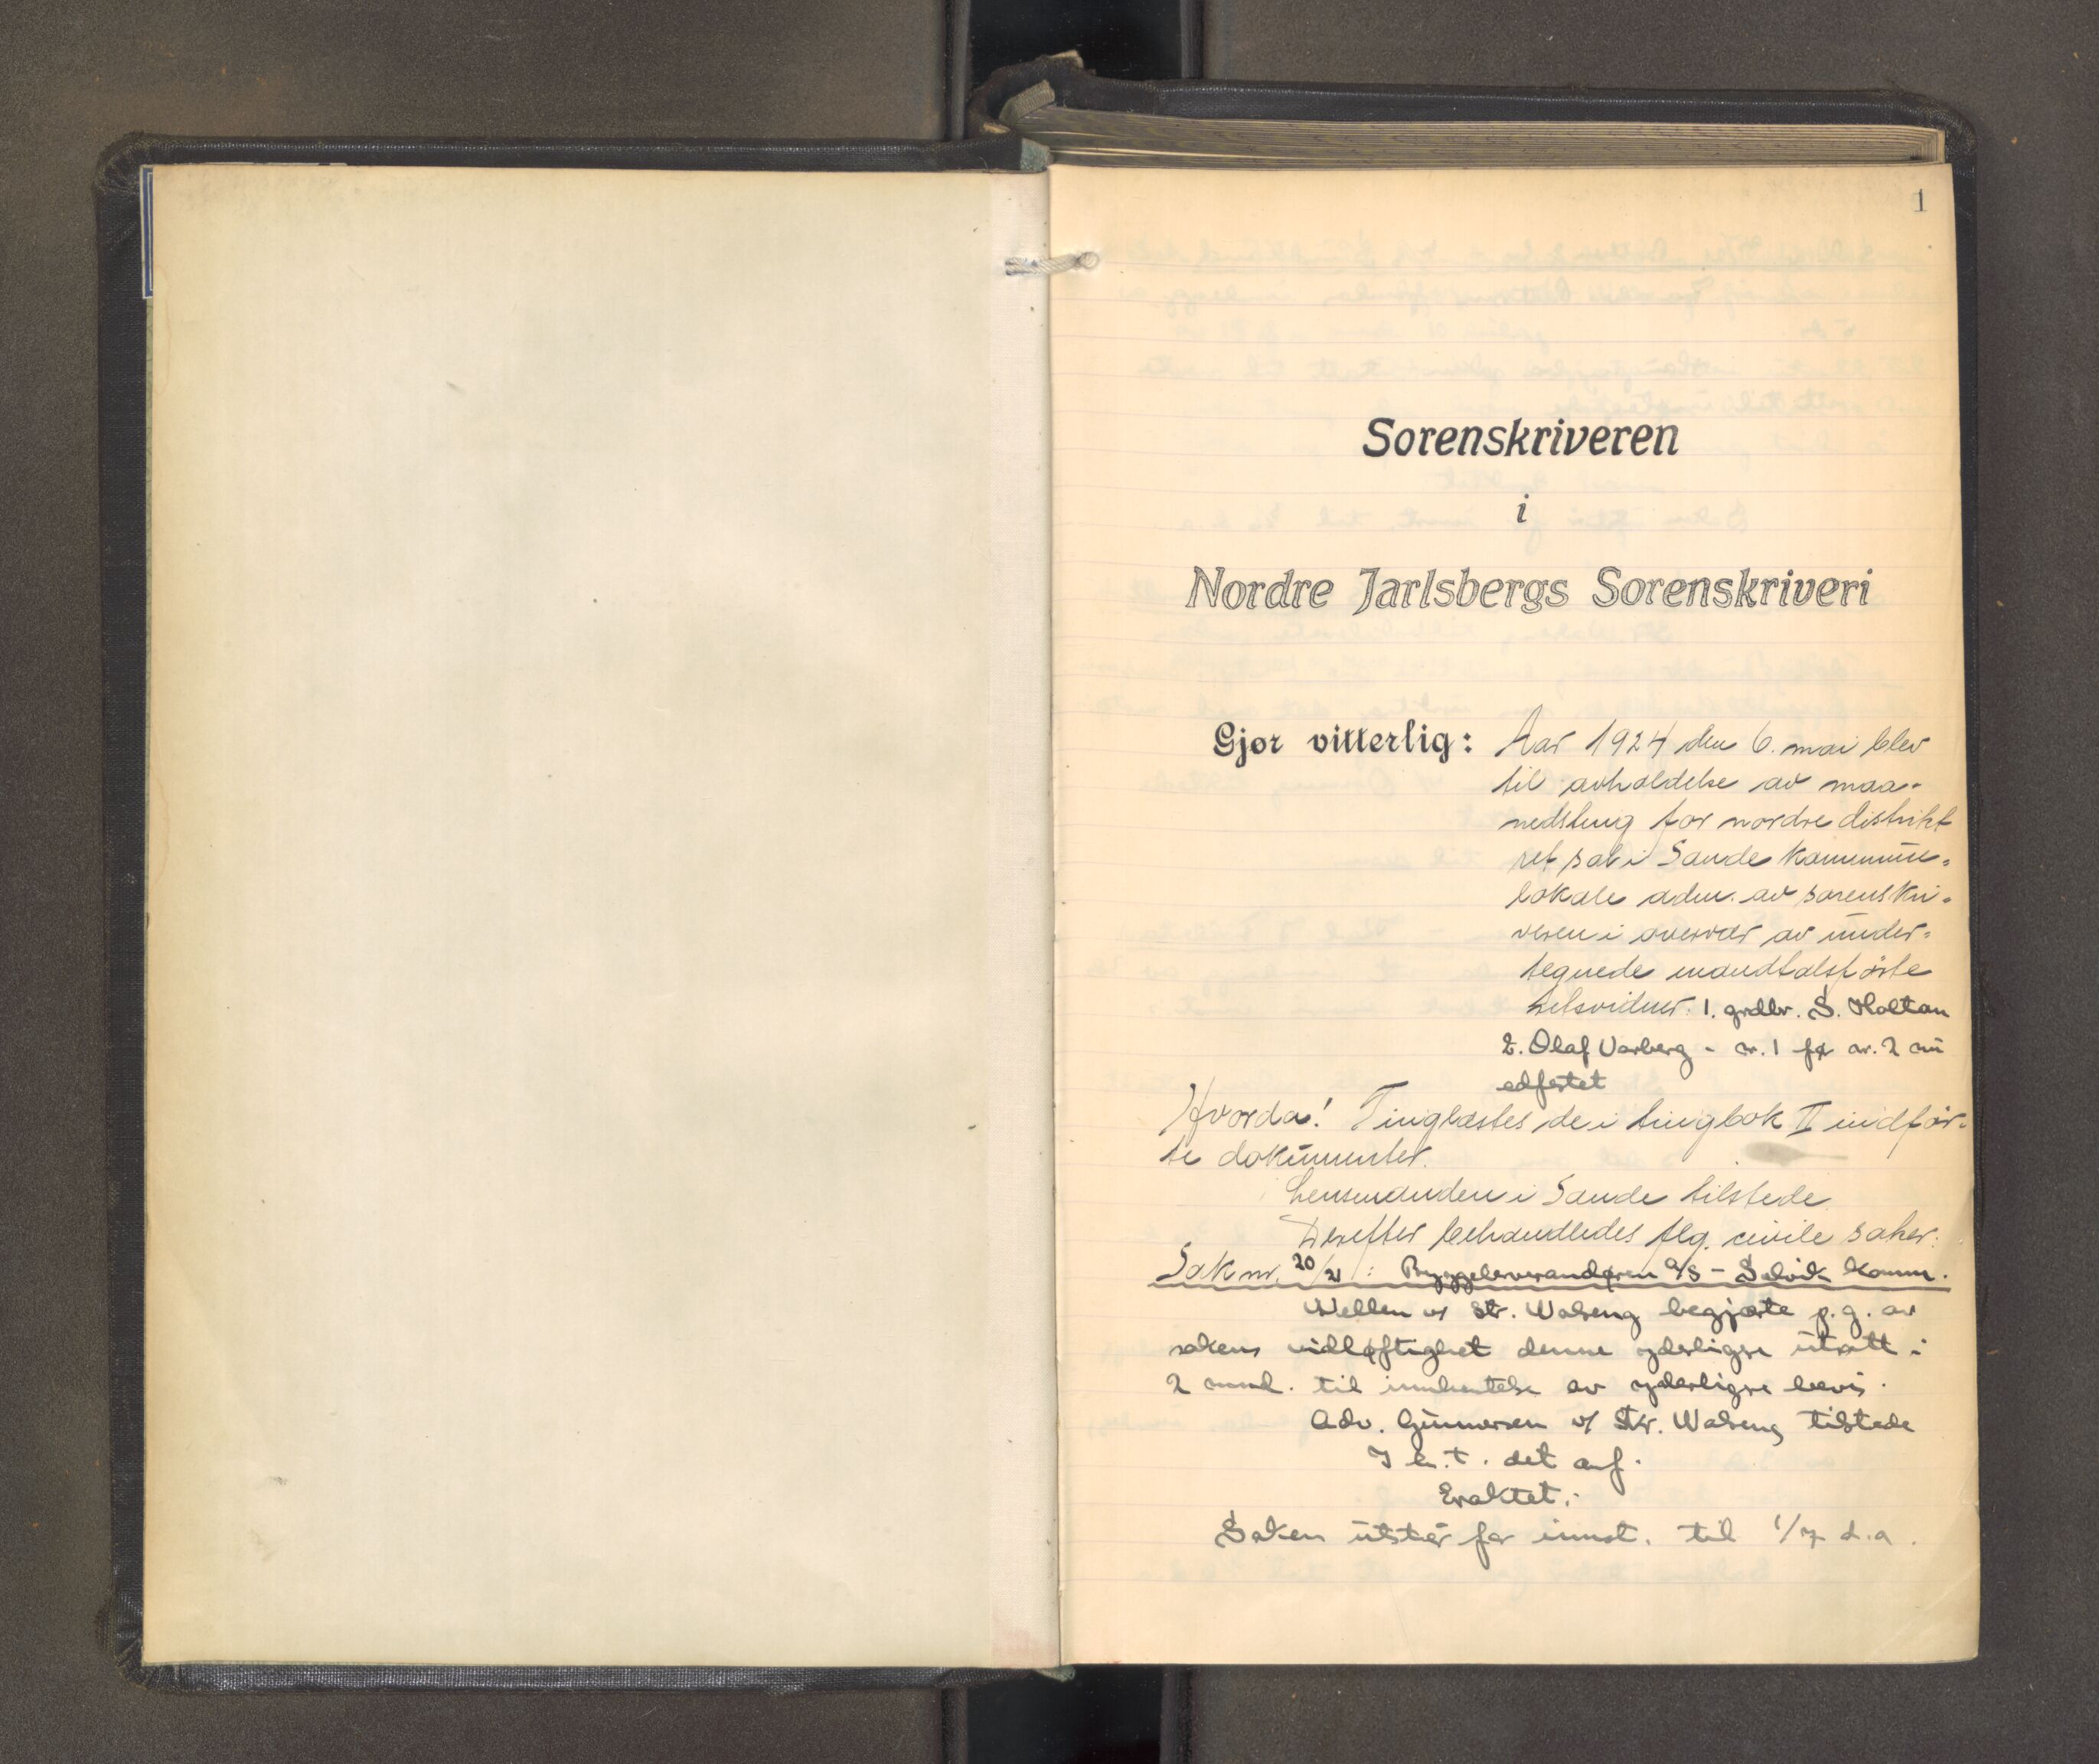 1
Sorenskriveren
i
Nordre Jarlsbergs Sorenskriveri
Gjør vitterlig: Aar 1924 den 6. mai blev
til avholdelse av maa-
nedsting for nordre distrikt
ret sat i Sande kommune-
lokale adm. av sorenskri-
veren i overvær av under-
tegnede mandtalsførte
retsvidner: 1. grdbr. S. Holtan
2. Olaf Varberg - nr. 1 før nr. 2 nu
edfestet
Hvorda! Tinglæstes de i tingbok II indfør-
te dokumenter.
Lensmanden i Sande tilstede.
Derefter behandledes flg. civile saker:
Sak nr. 20/21: Byggeleverandøren A/S - Selvik komm.
Wellen v/ str. Walseng begjærte p.g. av
sakens vidløftighet denne yderligere utsatt i
2 mnd. til innhentelse av yderligere bevis.
Adv. Gunnersen v/ Str. Walseng tilstede
I h.t. det anf.
Eraktet:
Saken utstår for innst. til 1/7 d.a.